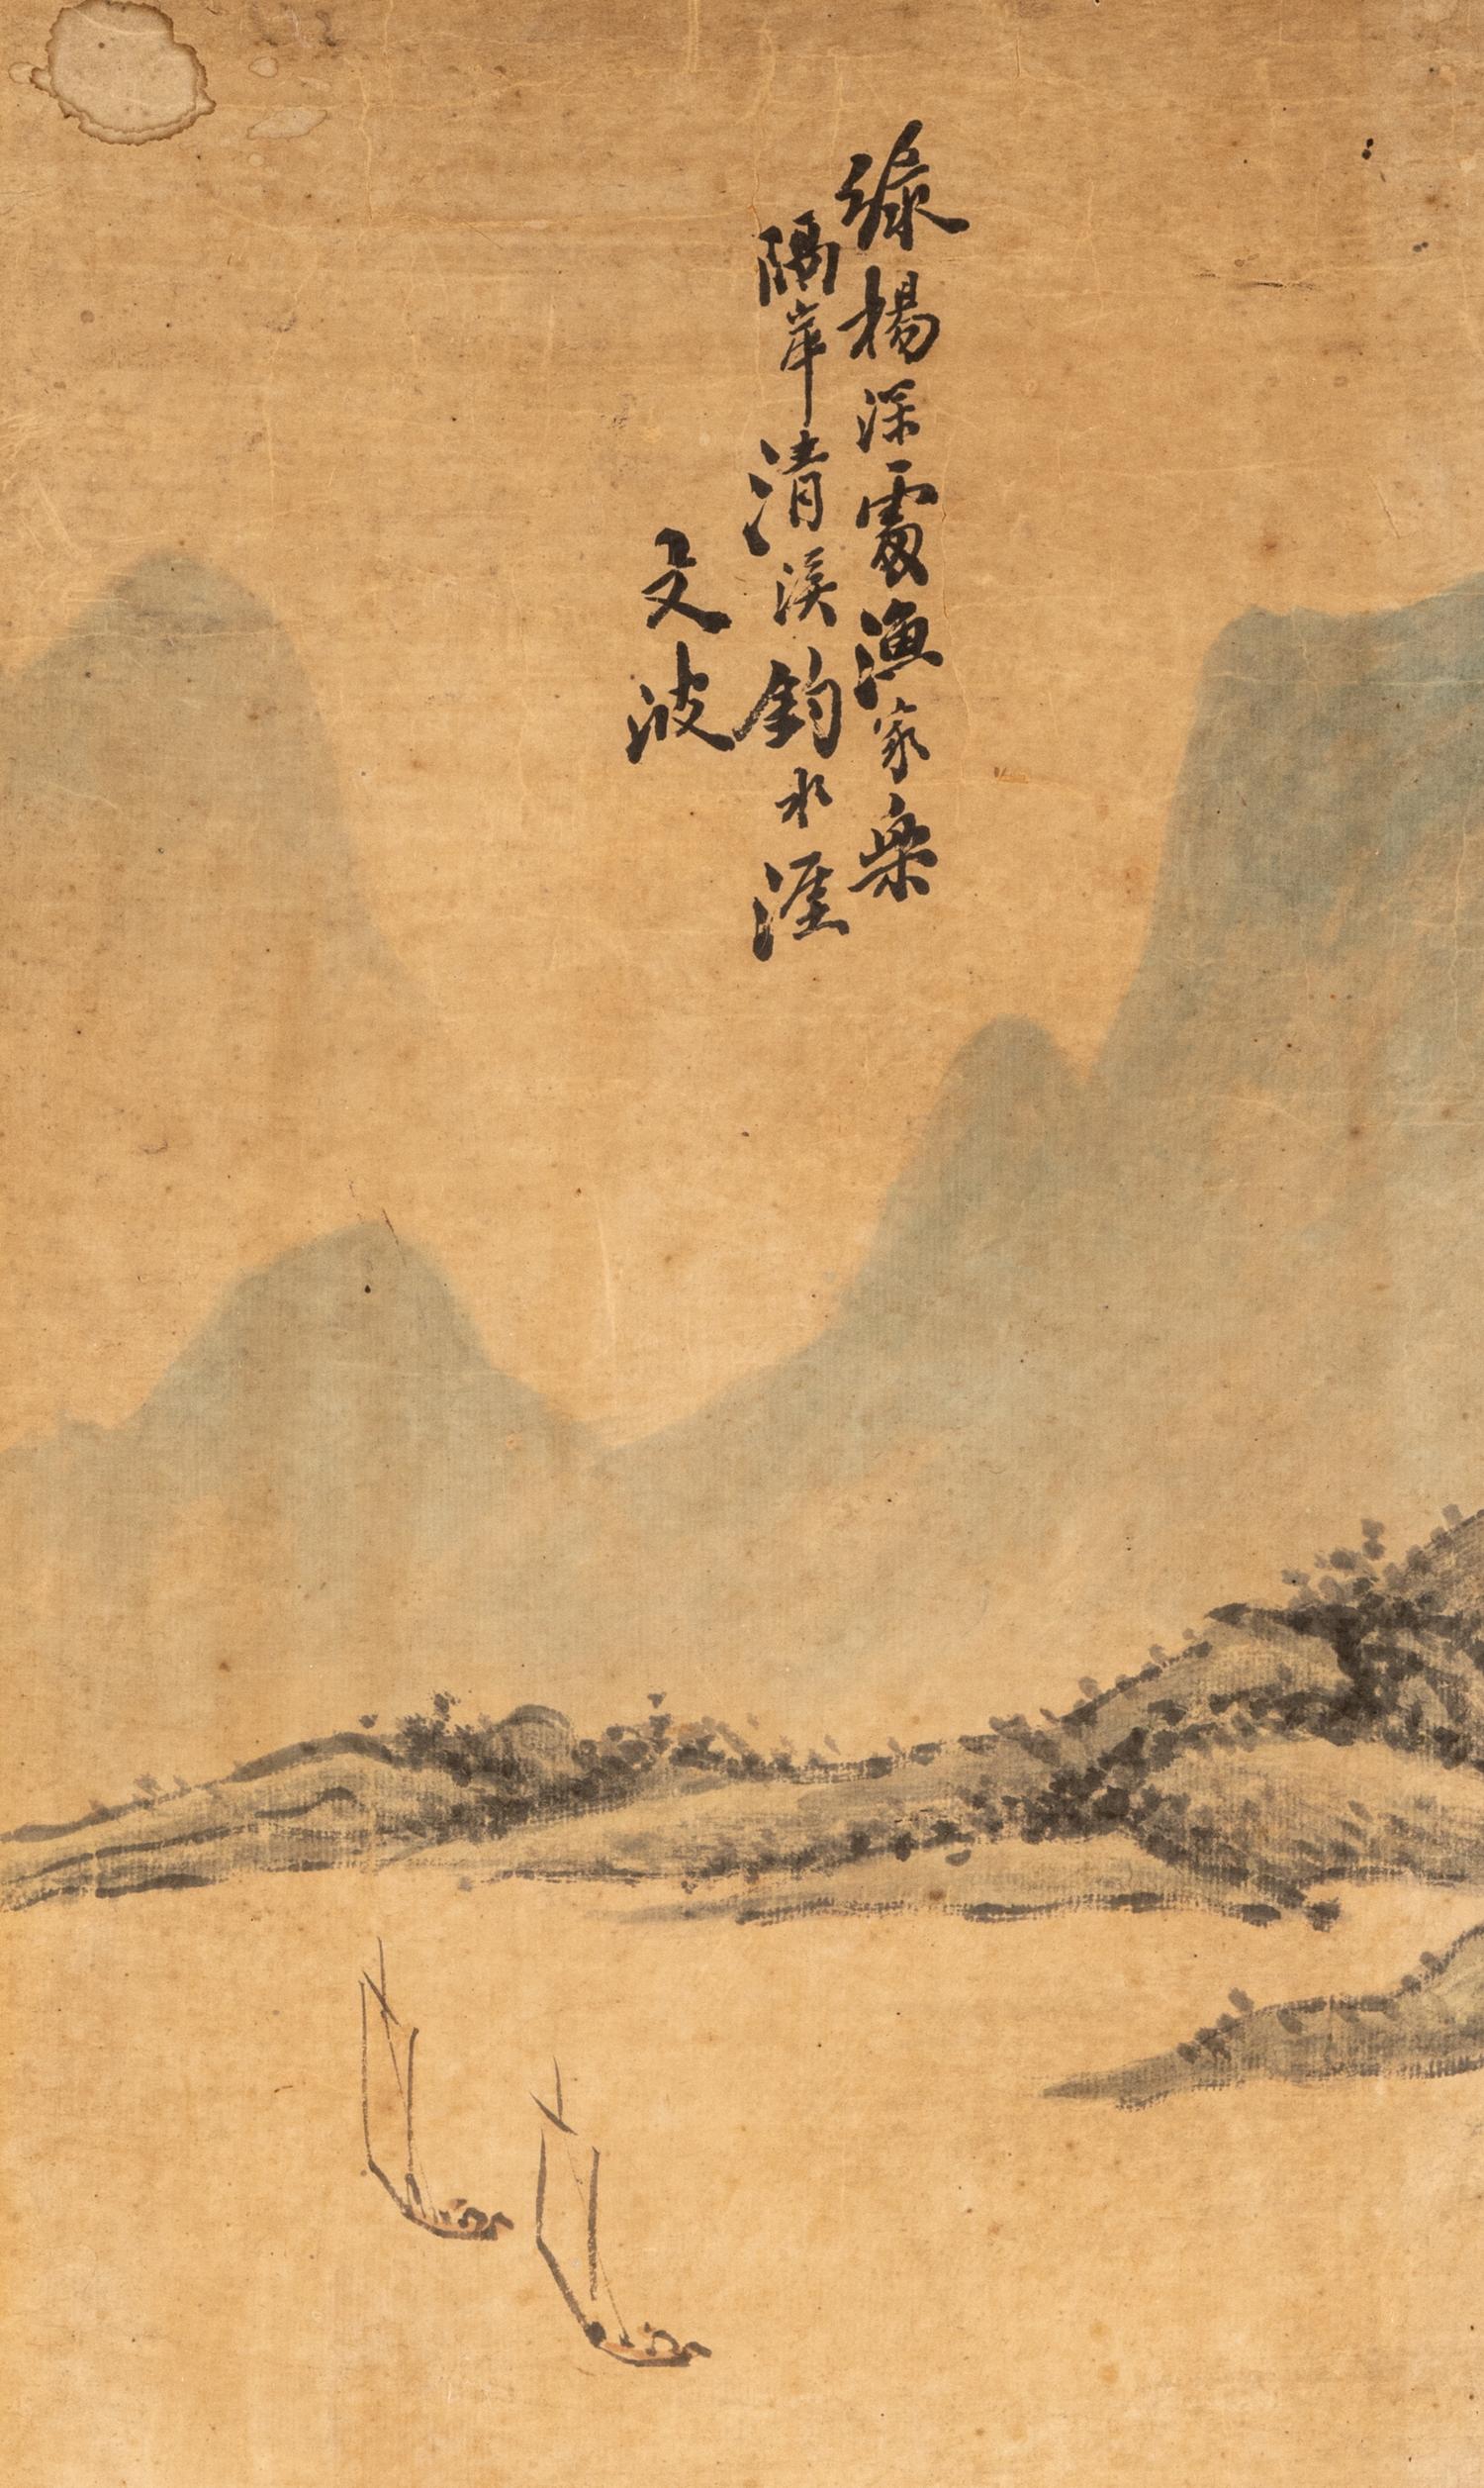 綠楊深處漁家樂
隔岸清溪釣水涯
文波